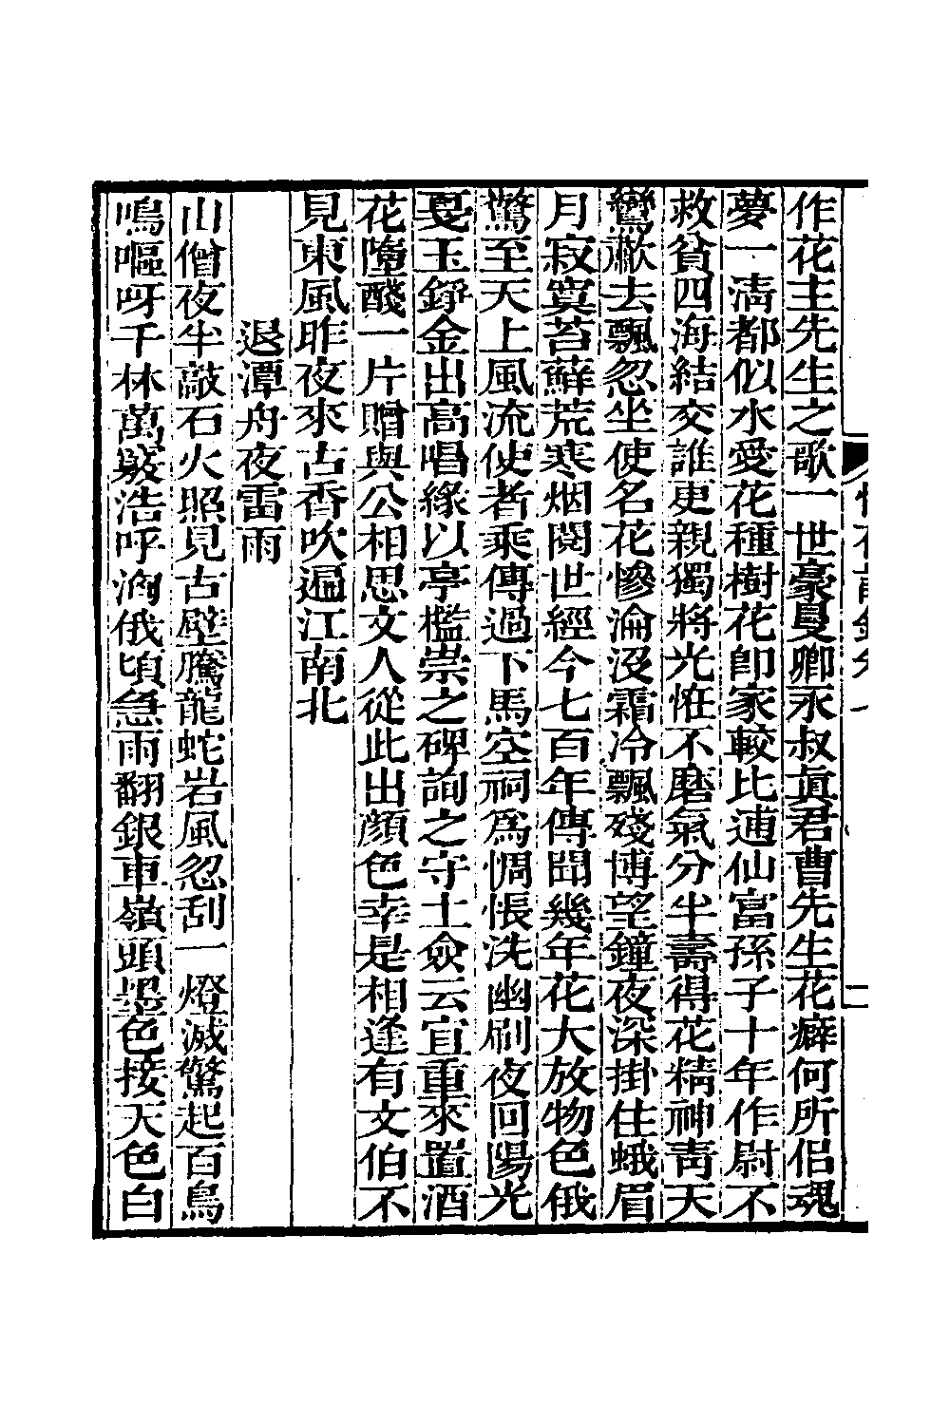 作花主先生之歌一世豪曼卿永叔眞君曹先生花癖何所侶魂
夢一淸都似水愛花種樹花卽家較比逋仙富孫子十年作尉不
救貧四海結交誰更親獨將光恠不磨氣分半壽得花精神靑天
鸞歘去飄忽坐使名花慘淪沒霜冷飄殘博望鐘夜深掛住蛾眉
月寂寞苔蘚荒寒烟閱世經今七百年傳聞幾年花大放物色俄
驚至天上風流使者乘傳過下馬空祠爲惆悵洗幽刷夜回陽光
戞玉錚金出高唱緣以亭檻崇之碑詢之守土僉云宜重來置酒
花墮醆一片贈與公相思文人從此出顏色幸是相逢有文伯不
見東風昨夜來古香吹遍江南北
退潭舟夜雷雨
山僧夜半敲石火照見古壁騰龍蛇岩風忽刮一燈滅驚起百鳥
鳴嘔呀千林萬竅浩呼洶俄頃急雨翻銀車嶺頭墨色接天色白